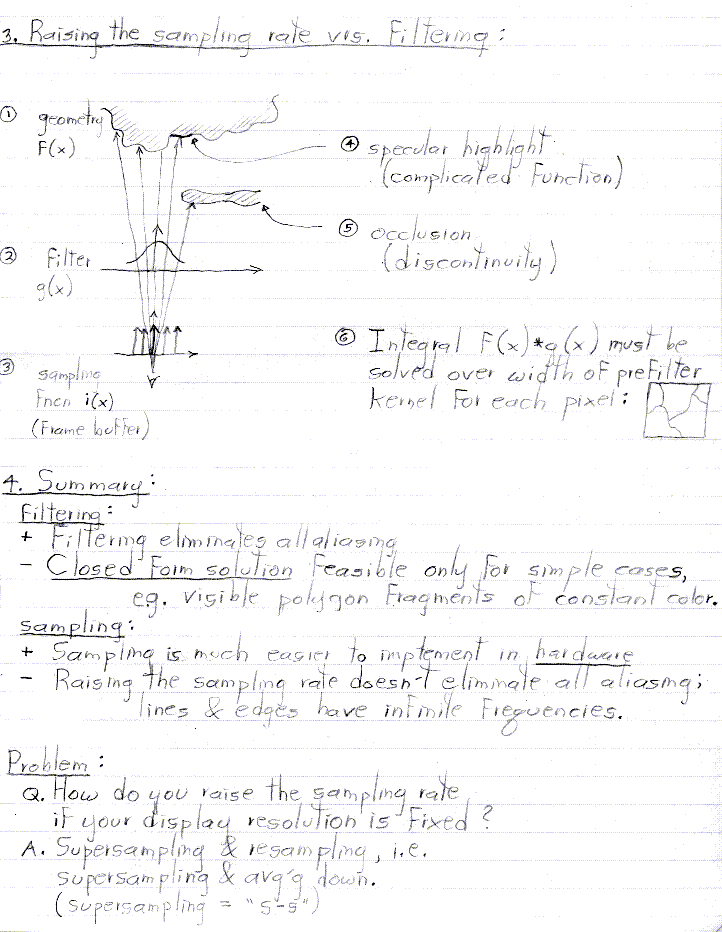 3. Raising the sampling rate vrs. Filtering:
① geometry
F(x)
④ specular highlight
(complicated function)
⑤ occlusion
(discontinuity)
② Filter
g(x)
⑥ Integral F(x)*g(x) must be
solved over width of prefilter
kernel for each pixel:
③ sampling
fncn i(x)
(frame buffer)
4. Summary:
Filtering:
+ Filtering eliminates all aliasing
- Closed form solution feasible only for simple cases,
e.g. visible polygon fragments of constant color.
sampling:
+ Sampling is much easier to implement in hardware
- Raising the sampling rate doesn't eliminate all aliasing;
lines & edges have infinite frequencies.
Problem:
Q. How do you raise the sampling rate
if your display resolution is fixed?
A. Supersampling & resampling, i.e.
supersampling & avg'g down.
(supersampling = "s-s")